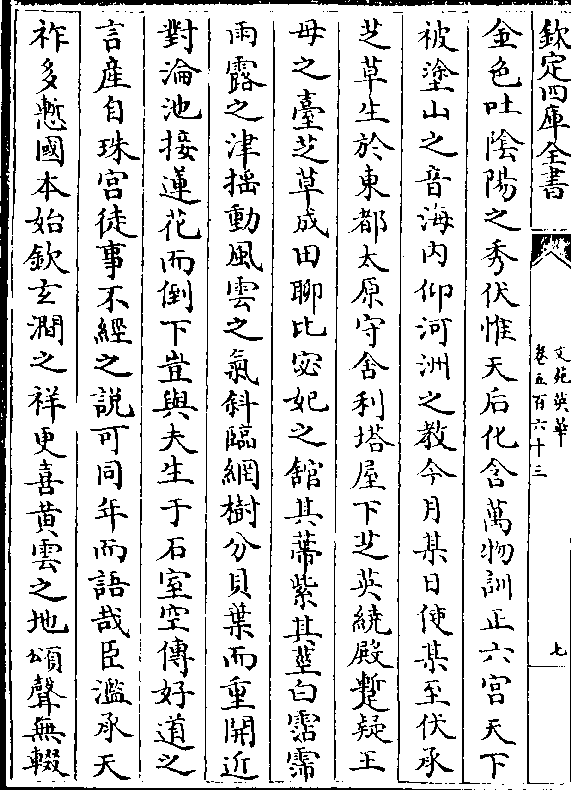 欽定四庫全書
文苑英華
卷五百六十三
七
金色吐陰陽之秀伏惟天后化含萬物訓正六宫天下
被塗山之音海内仰河洲之教今月某日使某至伏承
芝草生於東都太原守舍利塔屋下芝英繞殿蹔疑王
母之臺芝草成田聊比宓妃之舘其蔕紫其莖白霑霈
雨露之津揺動風雲之氣斜臨網樹分貝葉而重開近
對淪池接蓮花而倒下豈與夫生于石室空傳好道之
言産自珠宫徒事不經之説可同年而語哉臣濫承天
祚多慙國本始欽玄澗之祥更喜黄雲之地頌聲無輟